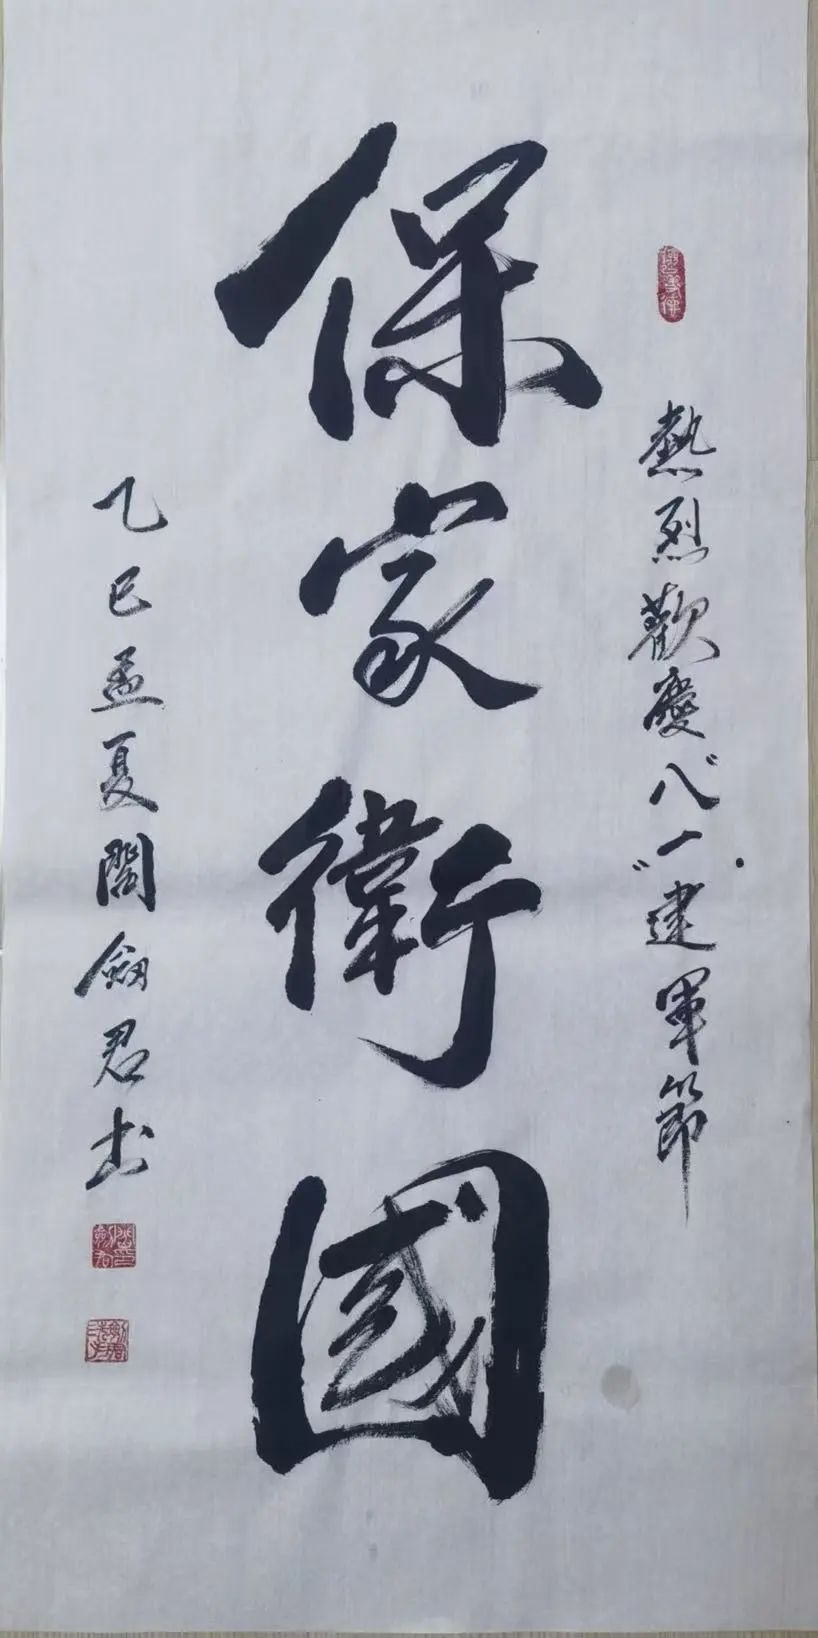 熱烈歡慶“八一”建軍節
保家衛國
乙巳孟夏閻劍君书